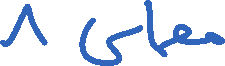 معمای ۸